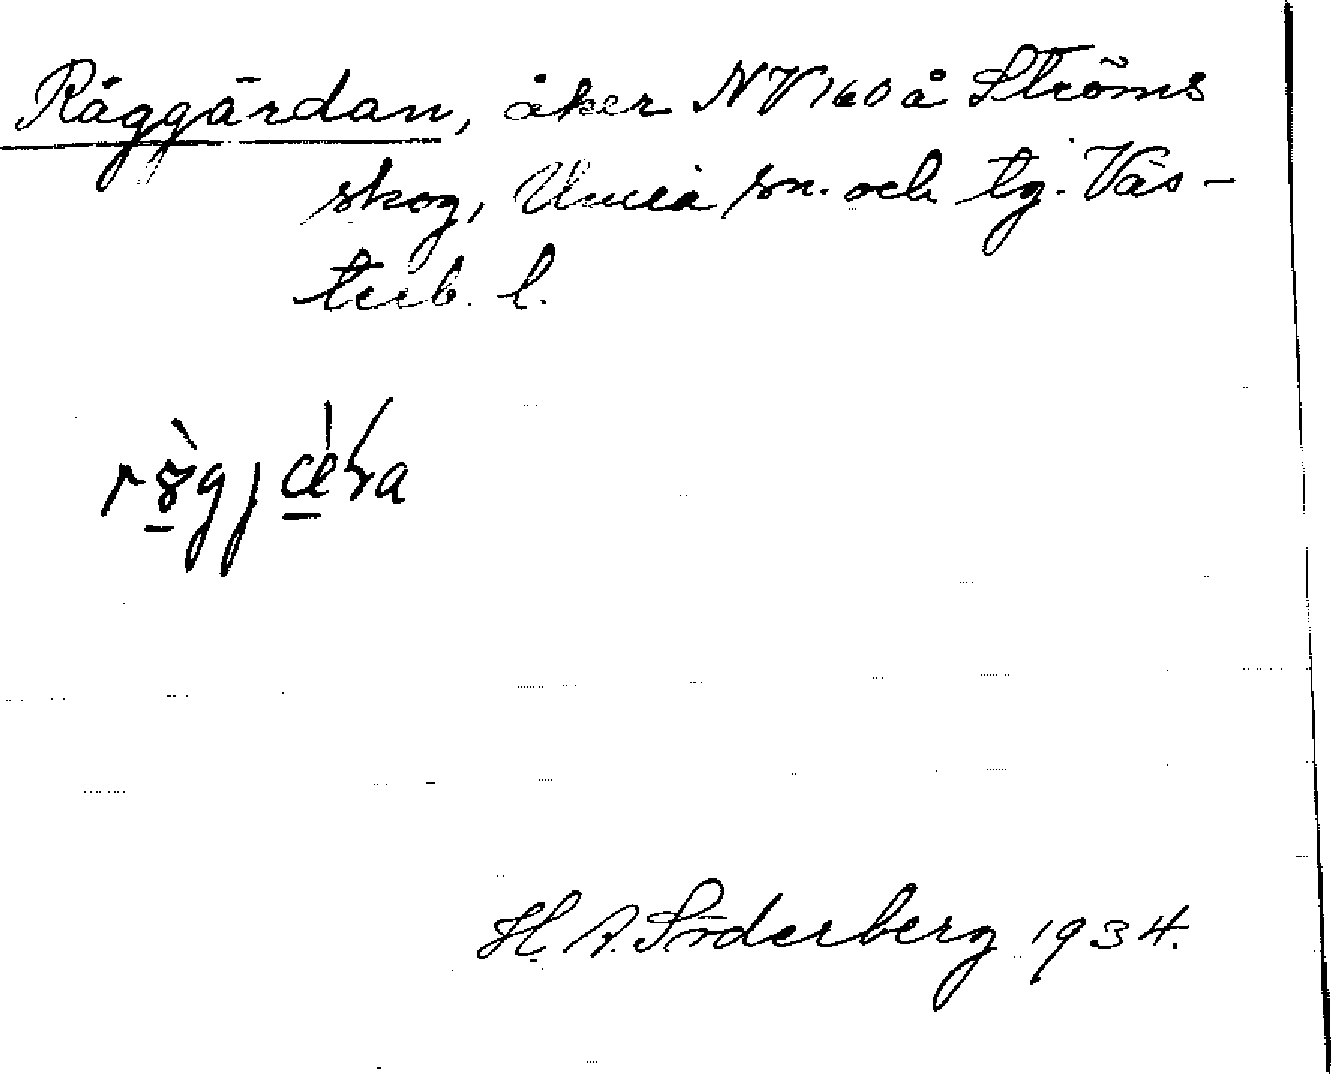 Råggärdan, åker NV 160 å Ströms
skog, Umeå sn. och tg. Väs-
terb. l.
H. A. Söderberg 1934.